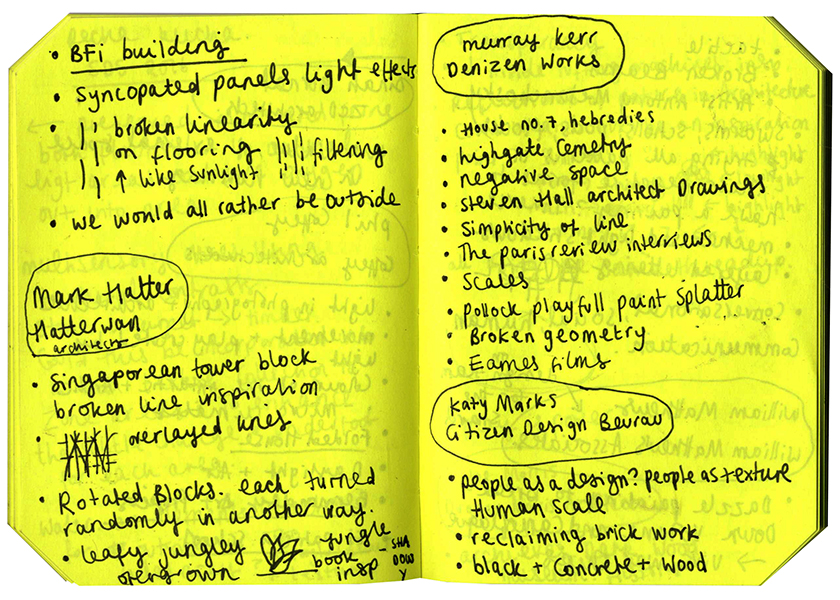 • BFi building
• Syncopated panels light effects
• broken linearity
on flooring filtering
↑ like sunlight
• we would all rather be outside
•
Mark Hatter
Hatterwan
architects
• Singaporean tower block
broken line inspiration
• overlayed lines
• Rotated Blocks. each turned
randomly in another way.
• leafy jungley jungle
overgrown book
insp - SHA
DOW
Y
murray kerr
Denizen Works
• House no.7, hebredies
• highgate Cemetry
• negative space
• Steven Hall architect Drawings
• Simplicity of line
• The paris review interviews
• Scales
• pollock playfull paint splatter
• Broken geometry
• Eames films
Katy Marks
Citizen Design Beurau
• people as a design? people as texture
Human Scale
• reclaiming brick work
• black + Concrete + Wood